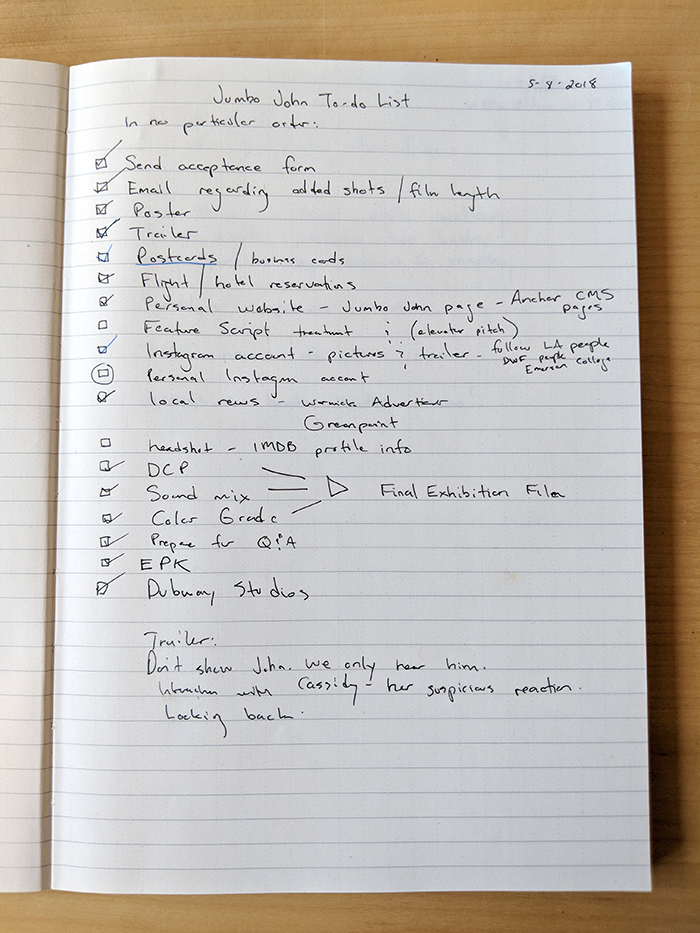 5-9-2018
Jumbo John To-do List
In no particular order:
Send acceptance form
Email regarding added shots / film length
Poster
Trailer
Postcards / business cards
Flight / hotel reservations
Personal website - Jumbo John page - Anchor CMS pages
Feature Script treatment & (elevator pitch)
Instagram account - pictures & trailer - follow LA people
DWF people
Emerson College
Personal Instagm account
local news - Warwick Advertiser
Greenpoint
headshot - IMDB profile info
DCP
Sound mix
Final Exhibition Film
Color Grade
Prepare for Q&A
EPK
Dubway Studios
Trailer:
Don't show John. We only hear him.
with Cassidy - her suspicious reaction.
Looking back.